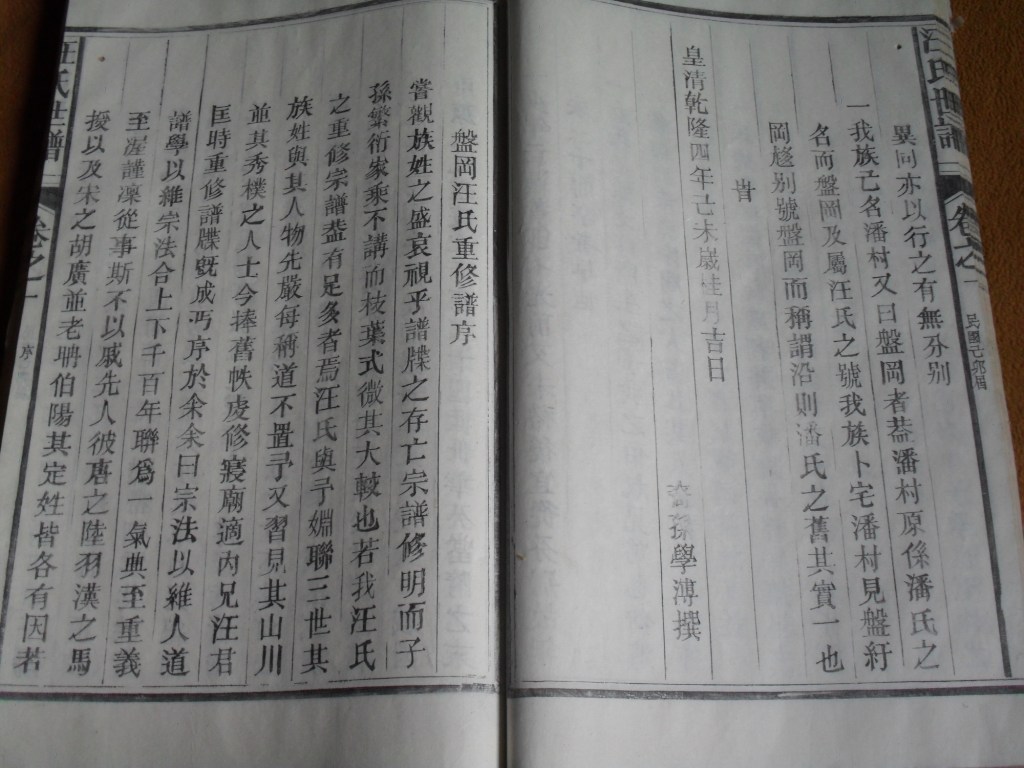 汪氏世譜
卷之一
民國己卯届
異同亦以行之有無分别
一我族亡名潘村又曰盤岡者葢潘村原係潘氏之
名而盤岡乃屬汪氏之號我族卜宅潘村見盤紆
岡趂别號盤岡而稱謂沿則潘氏之舊其實一也
旹
皇清乾隆四年己未歲桂月吉日
孫學溥撰
盤岡汪氏重修譜序
嘗觀族姓之盛衰視乎譜牒之存亡宗譜修明而子
孫繁衍家乘不講而枝葉式微其大較也若我汪氏
之重修宗譜葢有足多者焉汪氏與予婣聯三世其
族姓與其人物先嚴每稱道不置予又習見其山川
並其秀樸之人士今捧舊帙虔修寢廟適内兄汪君
匡時重修譜牒旣成丐序於余余曰宗法以維人道
譜學以維宗法合上下千百年聯爲一氣典至重義
至渥謹凜從事斯不以戚先人彼唐之陸羽漢之馬
援以及宋之胡廣並老聃伯陽其定姓皆各有因若
汪氏世譜
卷之一
序